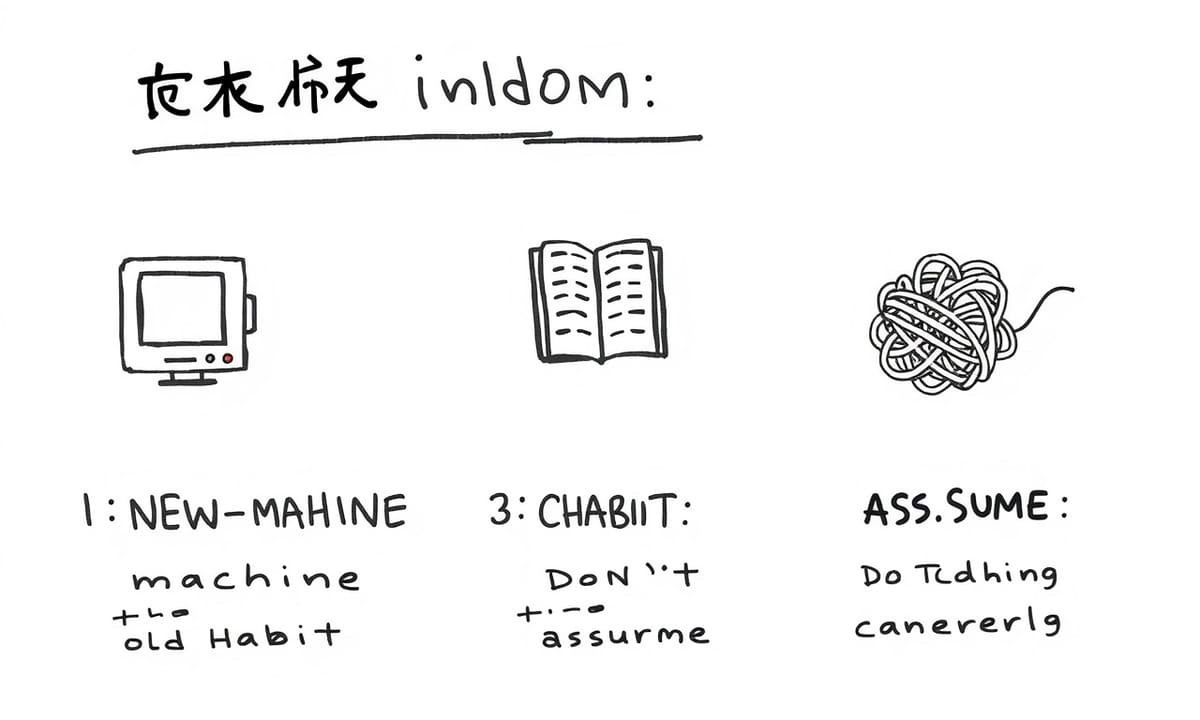 inldom:
1: NEW-MAHINE
machine
old Habit
3: CHABIIT:
DoN ''t
assurme
ASS.SUME:
Do Tcdhing
canererlg